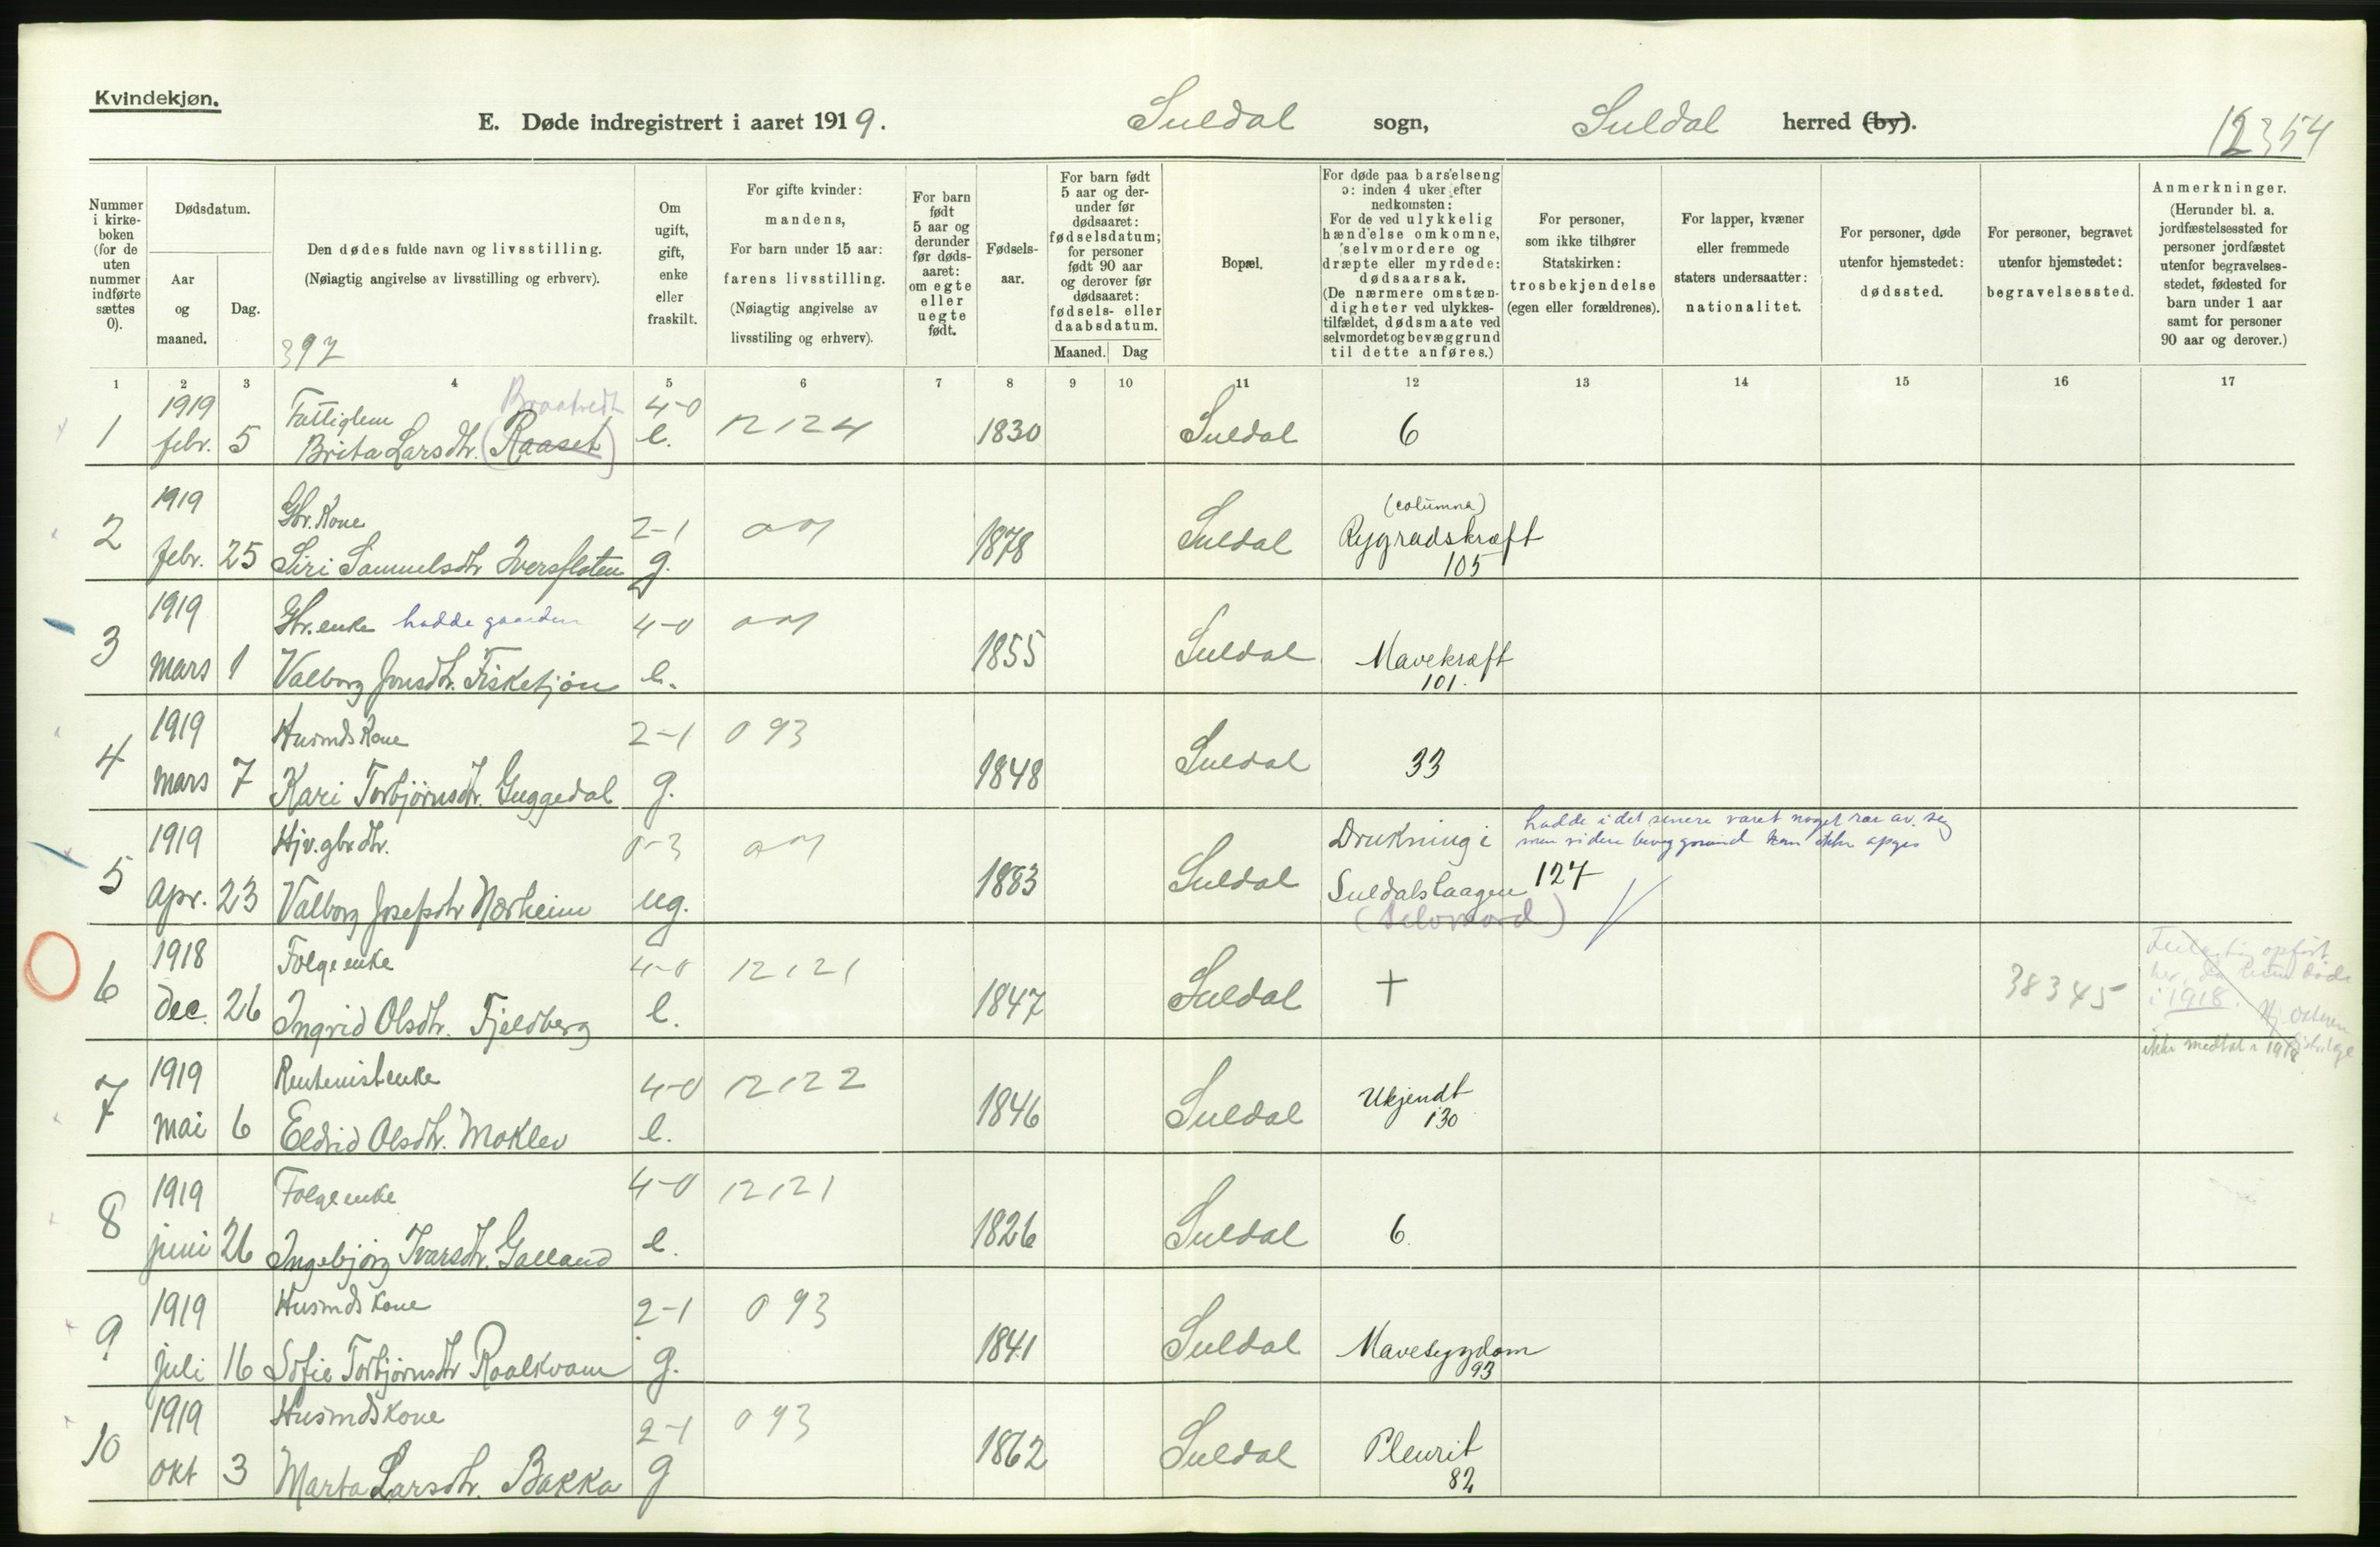 Kvindekjøn.
E. Døde indregistrert i aaret 1919.
Suldal sogn,
Suldal herred (by).
12354
Nummer i kirke-boken (for de uten nummer indførte sættes 0).
Dødsdatum.
Aar og maaned.
Dag.
Den dødes fulde navn og livsstilling.
(Nøiagtig angivelse av livsstilling og erhverv).
397
Om ugift, gift, enke eller fraskilt.
For gifte kvinder:
mandens,
For barn under 15 aar:
farens livsstilling.
(Nøiagtig angivelse av
livsstiling og erhverv).
For barn født 5 aar og derunder før døds-aaret: om egte eller uegte født.
Fødsels-aar.
For barn født 5 aar og der-under før dødsaaret: fødselsdatum; for personer født 90 aar og derover før dødsaaret: fødsels- eller daabsdatum.
Maaned. Dag
Bopæl.
For døde paa barselseng
ɔ: inden 4 uker efter
nedkomsten:
For de ved ulykkelig
hændelse omkomne,
selvmordere og
dræpte eller myrdede:
dødsaarsak.
(De nærmere omstæn-
digheter ved ulykkes-
tilfældet, dødsmaate ved
selvmordet og bevæggrund
til dette anføres.)
For personer,
som ikke tilhører
Statskirken:
trosbekjendelse
(egen eller forældrenes).
For lapper, kvæner
eller fremmede
staters undersaatter:
nationalitet.
For personer, døde
utenfor hjemstedet:
dødssted.
For personer, begravet
utenfor hjemstedet:
begravelsessted.
Anmerkninger.
(Herunder bl. a.
jordfæstelsessted for
personer jordfæstet
utenfor begravelses-
stedet, fødested for
barn under 1 aar
samt for personer
90 aar og derover.)
1 2 3 4 5 6 7 8 9 10 11 12 13 14 15 16 17
1919 Fattiglem Braatvedt 4-0
1 febr. 5 Brita Larsdtr. (Raaset) e. 12124 1830 Suldal 6
1919 Gbr. Kone 2-1 (columna)
2 febr. 25 Siri Samuelsdtr Iversfloten g. 1878 Suldal Rygradskræft
105
1919 Gbr. enke hadde gaarden 4-0
3 mars 1 Valborg Jonsdtr. Fisketjøn e. 1855 Suldal Mavekræft
101.
1919 Husmds Kone 2-1 093
4 mars 7 Kari Torbjørnsdtr. Guggedal g. 1848 Suldal 33
1919 Hjv. gbrdtr. 0-3 Drukning i hadde i det senere været noget rar av sig
men videre bevæggrund kan ikke opgis
5 apr. 23 Valborg Josefsdtr Nærheim ug. 1883 Suldal Suldalslaagen 127
(Selvmord)
1918 Folgeenke 4-0 12121
6 dec. 26 Ingrid Olsdtr. Fjeldberg e. 1847 Suldal + 38345
opført
her, da hun døde
i 1918.
ikke medtat i 1918
1919 Rentenistenke 4-0 12122
7 mai 6 Eldrid Olsdtr. Moklev e. 1846 Suldal Ukjendt
130
1919 Folgeenke 4-0 12121
8 juni 26 Ingebjørg Ivarsdtr. Galland e. 1826 Suldal 6.
1919 Husmds Kone 2-1 093
9 juli 16 Sofie Torbjørnsdtr Roalkvam g. 1841 Suldal Mavesygdom
93
1919 Husmds Kone 2-1 093
10 okt 3 Marta Larsdtr. Bakka g 1862 Suldal Pleurit
82